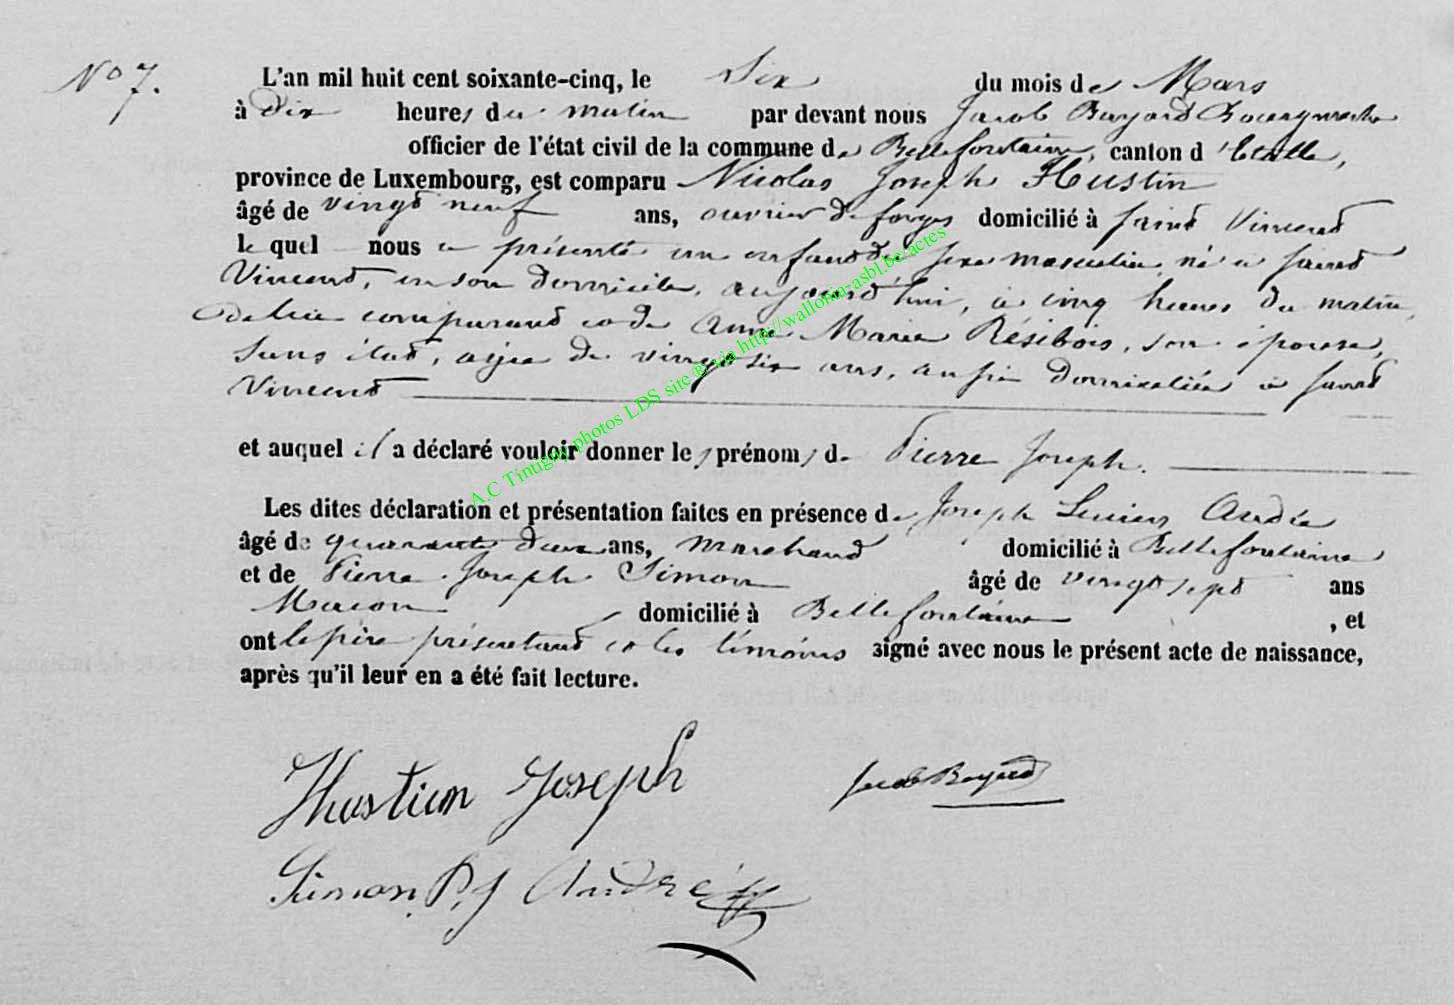 N° 7.
L'an mil huit cent soixante-cinq, le Six du mois de Mars
à Dix heures du matin par devant nous Jacob Bayard Bourgmestre
officier de l'état civil de la commune de Bellefontaine, canton d'Etalle,
province de Luxembourg, est comparu Nicolas Joseph Hustin
âgé de vingt neuf ans, ouvrier de forges domicilié à Saint Vincent
lequel nous a présenté un enfant du sexe masculin, né à Saint
Vincent, en son domicile, aujourd'hui, à cinq heures du matin,
de lui comparant et de Anne Marie Résibois, son épouse,
sans état, agée de vingt six ans, aussi domiciliée à Saint
Vincent
et auquel il a déclaré vouloir donner les prénoms de Pierre Joseph.
Les dites déclaration et présentation faites en présence de Joseph Lucien André
âgé de quarante deux ans, marchand domicilié à Bellefontaine
et de Pierre Joseph Simon âgé de vingt sept ans
Macon domicilié à Bellefontaine, et
ont le père présentant et les témoins signé avec nous le présent acte de naissance,
après qu'il leur en a été fait lecture.
Hustin Joseph Jacob Bayard
Simon P. J André
A.C Tintigny photos LDS site ® via http://wallonia-asbl.be/actes